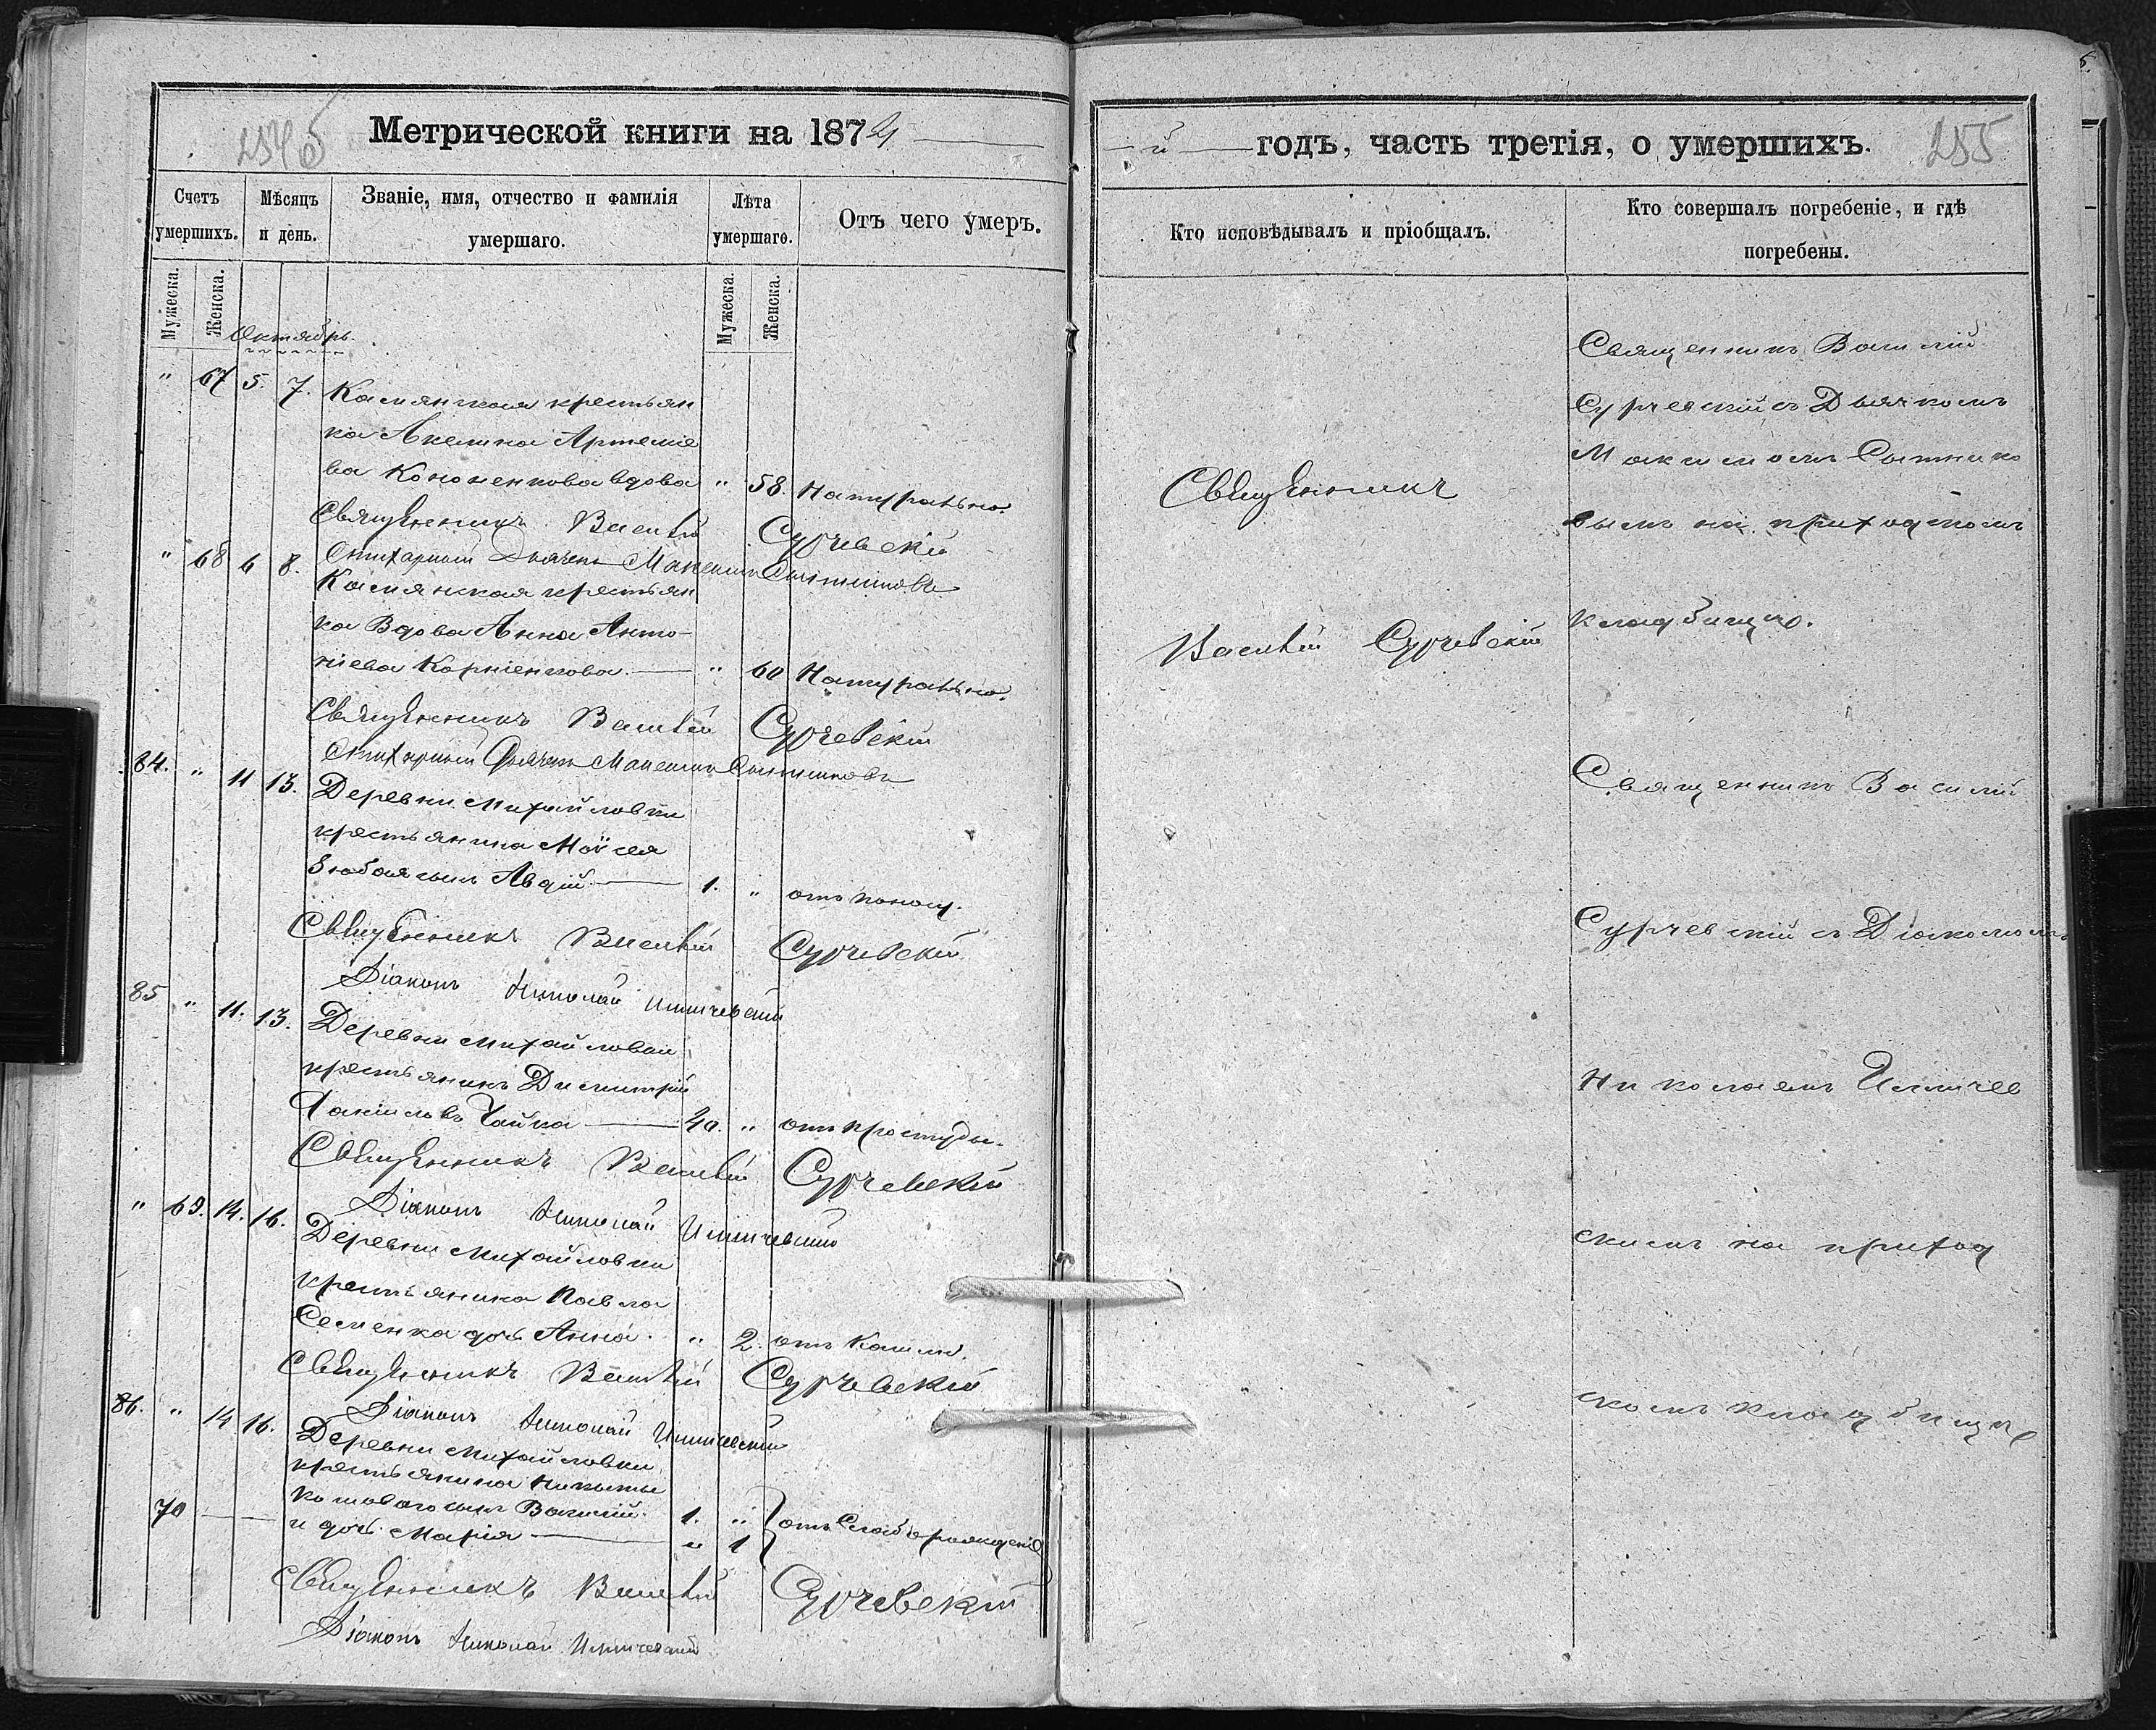 Метрической книги на 1874
Счетъ умершихъ.
Мѣсяцъ и день.
Званіе, имя, отчество и фамилія умершаго.
Лѣта умершаго.
Отъ чего умеръ.
Мужеска.
Женска.
Мужеска.
Женска.
Октябрь.
" 67 5. 7. Камянская крестьян
ка Акелина Артеміе
ва Кононенкова вдова " 58. Натурально.
Священникъ Василій Сурчевскій
Стихарный Дьячекъ Максимъ Сытниковъ
" 68 6 8.
Камянская крестьян
ка Вдова Анна Анто-
ніева Корніенкова. " 60 Натурально.
Священникъ Василій Сурчевскій
Стихарный Дьячекъ Максимъ Сытниковъ
84. " 11 13. Деревни Михайловки
крестьянина Моисея
сынъ Авдій 1. " отъ поносу.
Священникъ Василій Сурчевскій
Діаконъ Николай
85 " 11. 13. Деревни Михайловки
крестьянинъ Димитрій
Чайка 40. " отъ простуды.
Священникъ Василій Сурчевскій
Діаконъ Николай
" 69. 14. 16. Деревни Михайловки
крестьянина Павла
Семенка дочь Анна. " 2. отъ кашлю.
Священникъ Василій Сурчевскій
Діаконъ Николай
86. " 14 16. Деревни Михайловки
крестьянина Никиты
сынъ Василій. 1. "
70 и дочь Марія " 1 отъ
Священникъ Василій Сурчевскій
Діаконъ Николай
й годъ, часть третія, о умершихъ. 255
Кто исповѣдывалъ и пріобщалъ.
Кто совершалъ погребеніе, и гдѣ погребены.
Священникъ
Василій Сурчевскій
Священникъ Василій
Сурчевскій съ Дьячкомъ
Максимомъ Сытнико
вымъ на приходскомъ
кладбищѣ.
Священникъ Василій
Сурчевскій съ Діакономъ
Николаемъ
скимъ на приход
скомъ кладбищѣ